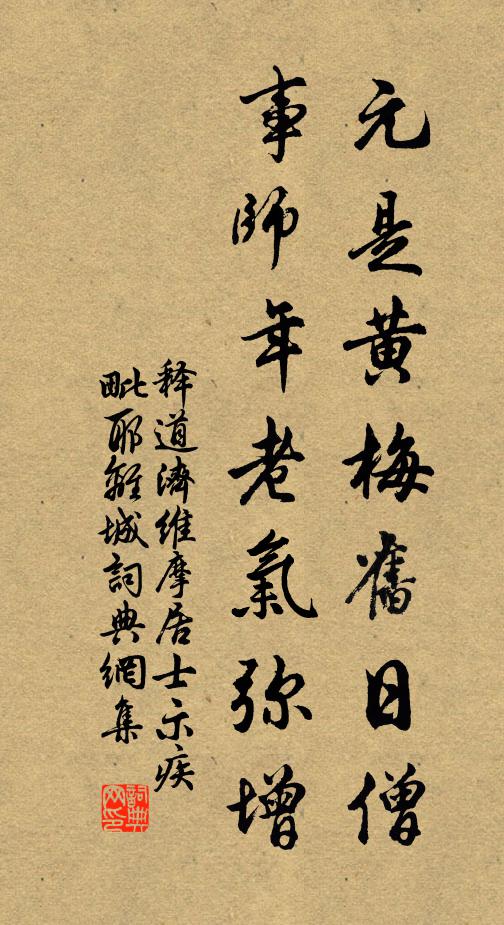 元是黄梅舊日僧
事師年老氣弥增
释道濟維摩居士示疾
毗耶離城詞典網集
詞典網印